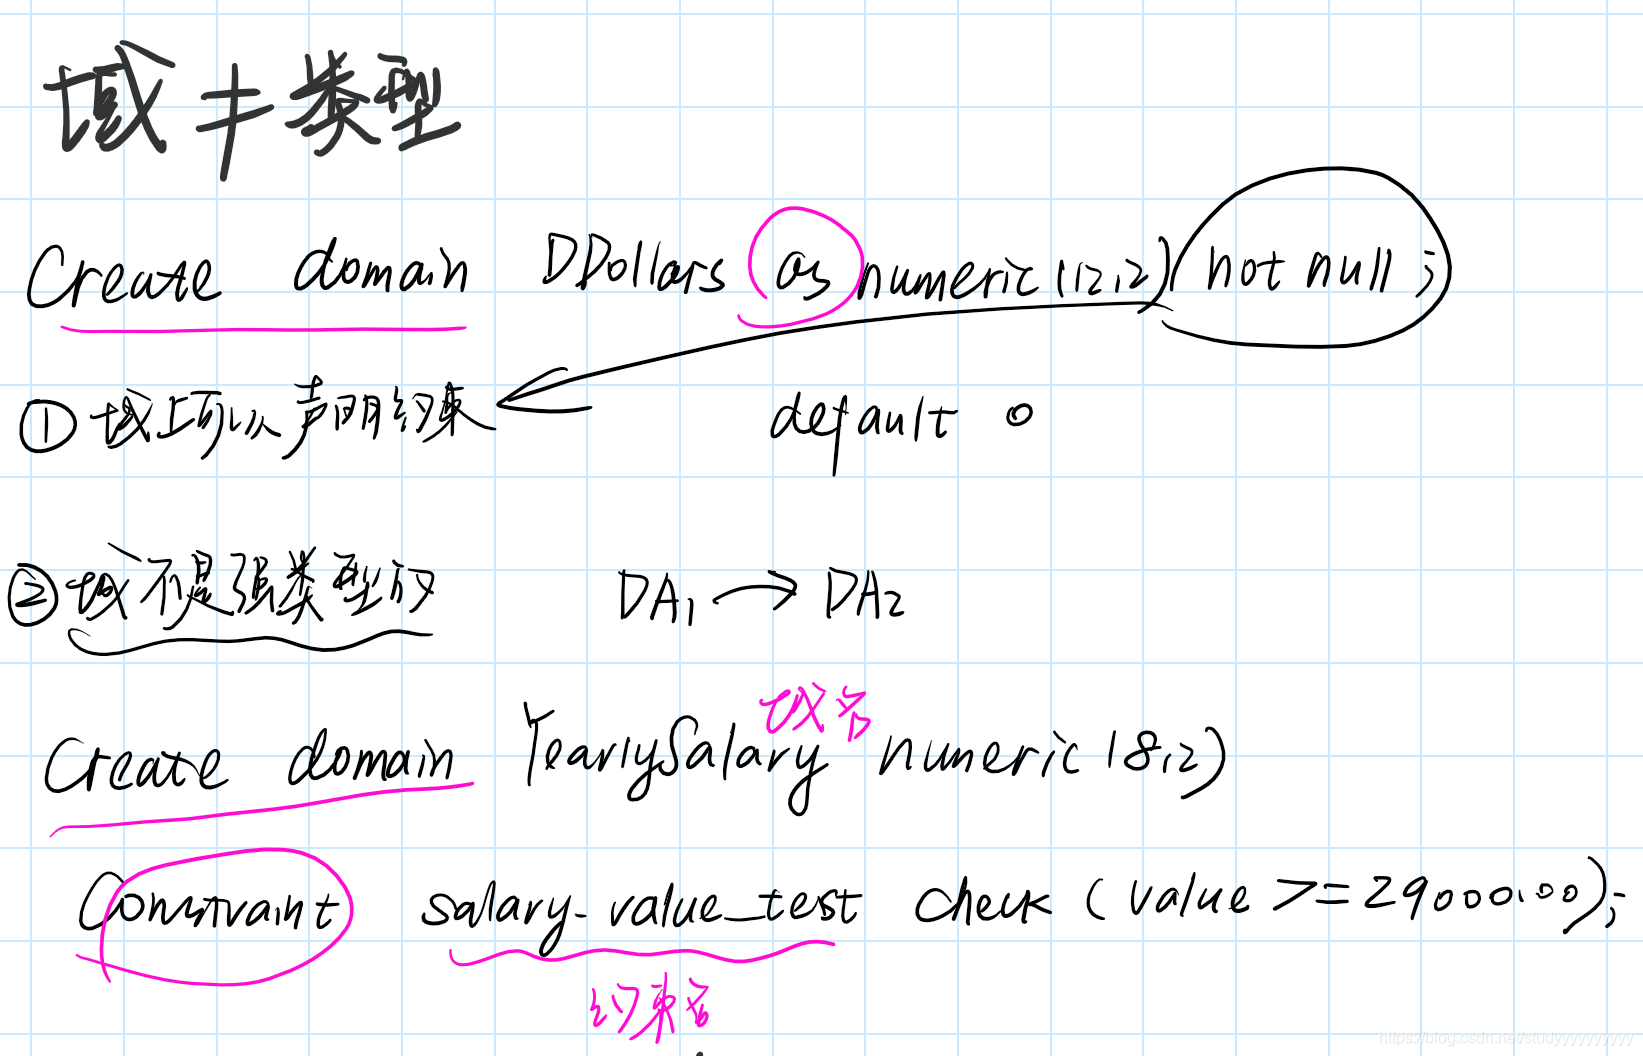 域≠类型
Create domain DDollars as numeric(12,2) not null;
①域上可以声明约束 default 0
②域不是强类型的 DA1 → DA2
域名
Create domain YearlySalary numeric(8,2)
Constraint salary_value_test check (value >= 29000.00);
约束名
https://blog.csdn.net/studyyyyyyyyyy